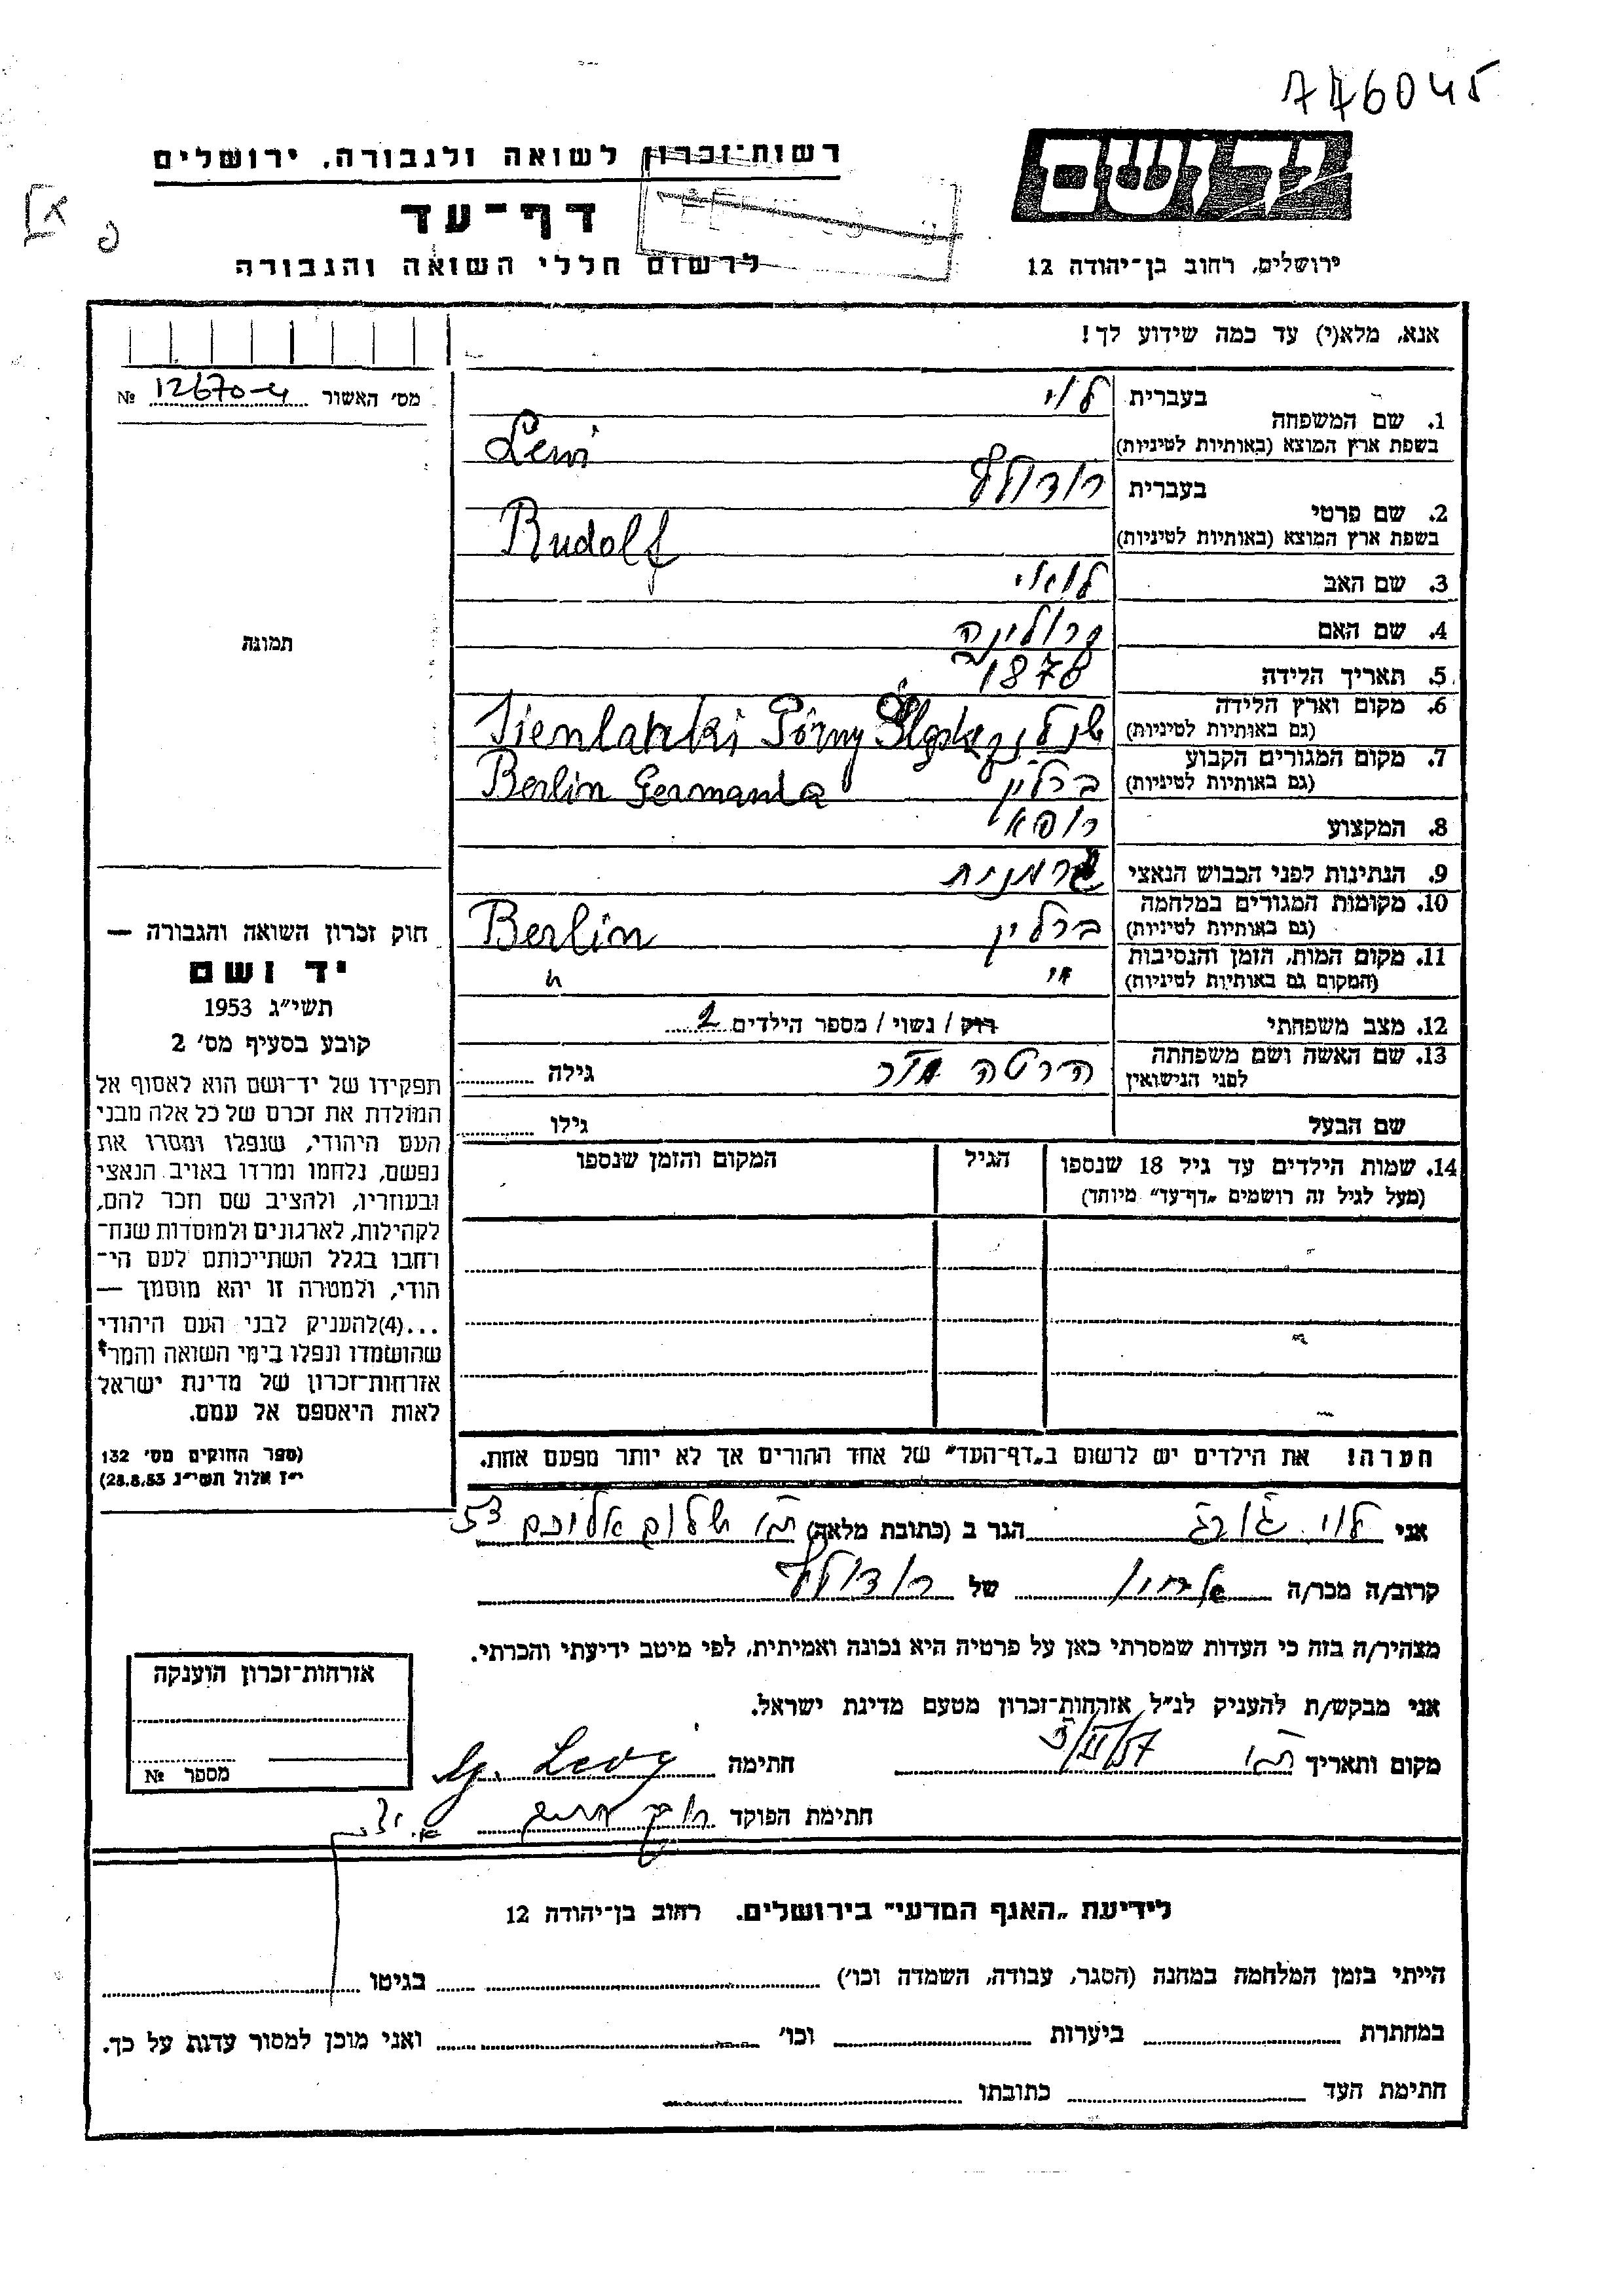 746045
יד ושם
רשות־זכרון לשואה ולגבורה, ירושלים
דף־עד
לרשום חללי השואה והגבורה
ירושלים, רחוב בן־יהודה 12
אנא, מלא(י) עד כמה שידוע לך!
מס׳ האשור 12670-4 №
1. שם המשפחה
בעברית לוי
בשפת ארץ המוצא (באותיות לטיניות) Lewi
2. שם פרטי
בעברית רודולף
בשפת ארץ המוצא (באותיות לטיניות) Rudolf
3. שם האב לואי
4. שם האם
5. תאריך הלידה 1878
6. מקום וארץ הלידה
(גם באותיות לטיניות)
7. מקום המגורים הקבוע
(גם באותיות לטיניות) ברלין Berlin Germania
8. המקצוע רופא
9. הנתינות לפני הכבוש הנאצי גרמנית
10. מקומות המגורים במלחמה
(גם באותיות לטיניות) ברלין Berlin
11. מקום המות, הזמן והנסיבות
(המקום גם באותיות לטיניות) " "
12. מצב משפחתי רווק / נשוי / מספר הילדים 2
13. שם האשה ושם משפחתה
לפני הנישואין הרטה גילה
שם הבעל גילו
14. שמות הילדים עד גיל 18 שנספו הגיל המקום והזמן שנספו
(מעל לגיל זה רושמים „דף־עד" מיוחד)
תמונה
חוק זכרון השואה והגבורה —
יד ושם
תשי״ג 1953
קובע בסעיף מס׳ 2
תפקידו של יד־ושם הוא לאסוף אל
המולדת את זכרם של כל אלה מבני
העם היהודי, שנפלו ומסרו את
נפשם, נלחמו ומרדו באויב הנאצי
ובעוזריו, ולהציב שם וזכר להם,
לקהילות, לארגונים ולמוסדות שנח־
רחבו בגלל השתייכותם לעם הי־
הודי, ולמטרה זו יהא מוסמך —
...(4)להעניק לבני העם היהודי
שהושמדו ונפלו בימי השואה והמרי
אזרחות־זכרון של מדינת ישראל
לאות היאספם אל עמם.
(ספר החוקים מס׳ 132
י״ז אלול תשי״ג 28.8.53)
הערה! את הילדים יש לרשום ב„דף־העד" של אחד ההורים אך לא יותר מפעם אחת.
אני לוי גורג הגר ב (כתובת מלאה) ת״א שלום אליכם 53
קרוב/ה מכר/ה אחיו של רודולף
מצהיר/ה בזה כי העדות שמסרתי כאן על פרטיה היא נכונה ואמיתית, לפי מיטב ידיעתי והכרתי.
אני מבקש/ת להעניק לנ״ל אזרחות־זכרון מטעם מדינת ישראל.
מקום ותאריך ת״א חתימה G. Levy
חתימת הפוקד
אזרחות־זכרון הוענקה
מספר №
לידיעת „האגף המדעי" בירושלים, רחוב בן־יהודה 12
הייתי בזמן המלחמה במחנה (הסגר, עבודה, השמדה וכו׳) בגיטו
במחתרת ביערות וכו׳ ואני מוכן למסור עדות על כך.
חתימת העד כתובתו